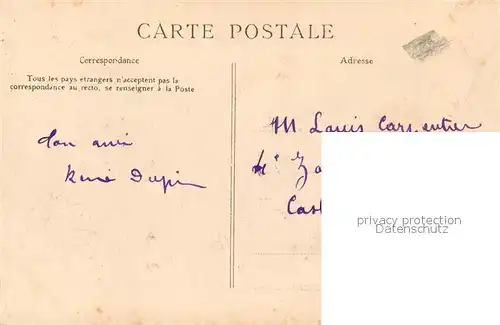 CARTE POSTALE
Correspondance
Adresse
Tous les pays étrangers n'acceptent pas la
correspondance au recto, se renseigner à la Poste
M Louis Carpentier
ami
René Dupin
privacy protection
Datenschutz